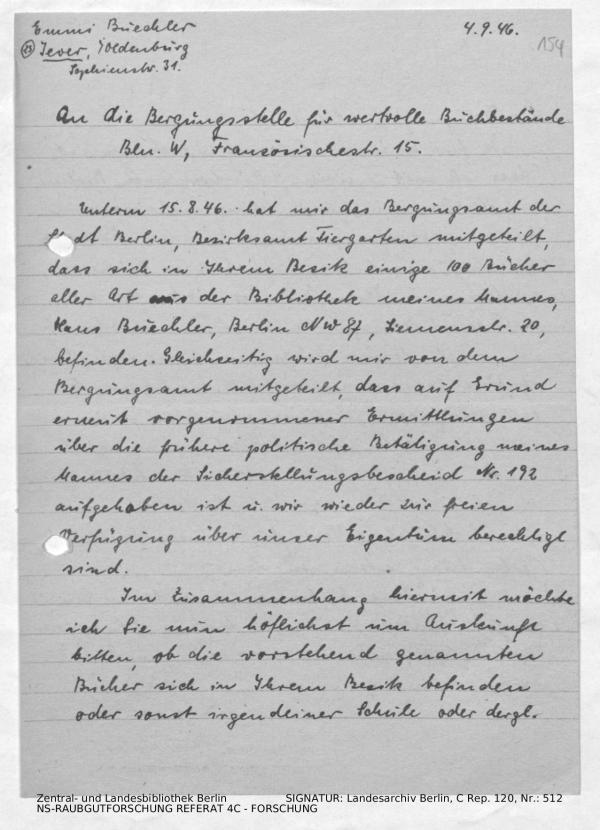 Emmi Buechler
4.9.46.
154
(23) Jever, i/Oldenburg
Sophienstr. 31.
An die Bergungsstelle für wertvolle Buchbestände
Bln. W, Französischestr. 15.
Unterm 15.8.46. hat mir das Bergungsamt der
Stadt Berlin, Bezirksamt Tiergarten mitgeteilt,
dass sich in Ihrem Besitz einige 100 Bücher
aller Art aus der Bibliothek meines Mannes,
Hans Buechler, Berlin NW 87, Siemensstr. 20,
befinden. Gleichzeitig wird mir von dem
Bergungsamt mitgeteilt, dass auf Grund
erneut vorgenommener Ermittlungen
über die frühere politische Betätigung meines
Mannes der Sicherstellungsbescheid Nr. 192
aufgehoben ist u. wir wieder zur freien
Verfügung über unser Eigentum berechtigt
sind.
Im Zusammenhang hiermit möchte
ich Sie nun höflichst um Auskunft
bitten, ob die vorstehend genannten
Bücher sich in Ihrem Besitz befinden
oder sonst irgendeiner Schule oder dergl.
Zentral- und Landesbibliothek Berlin
SIGNATUR: Landesarchiv Berlin, C Rep. 120, Nr.: 512
NS-RAUBGUTFORSCHUNG REFERAT 4C - FORSCHUNG